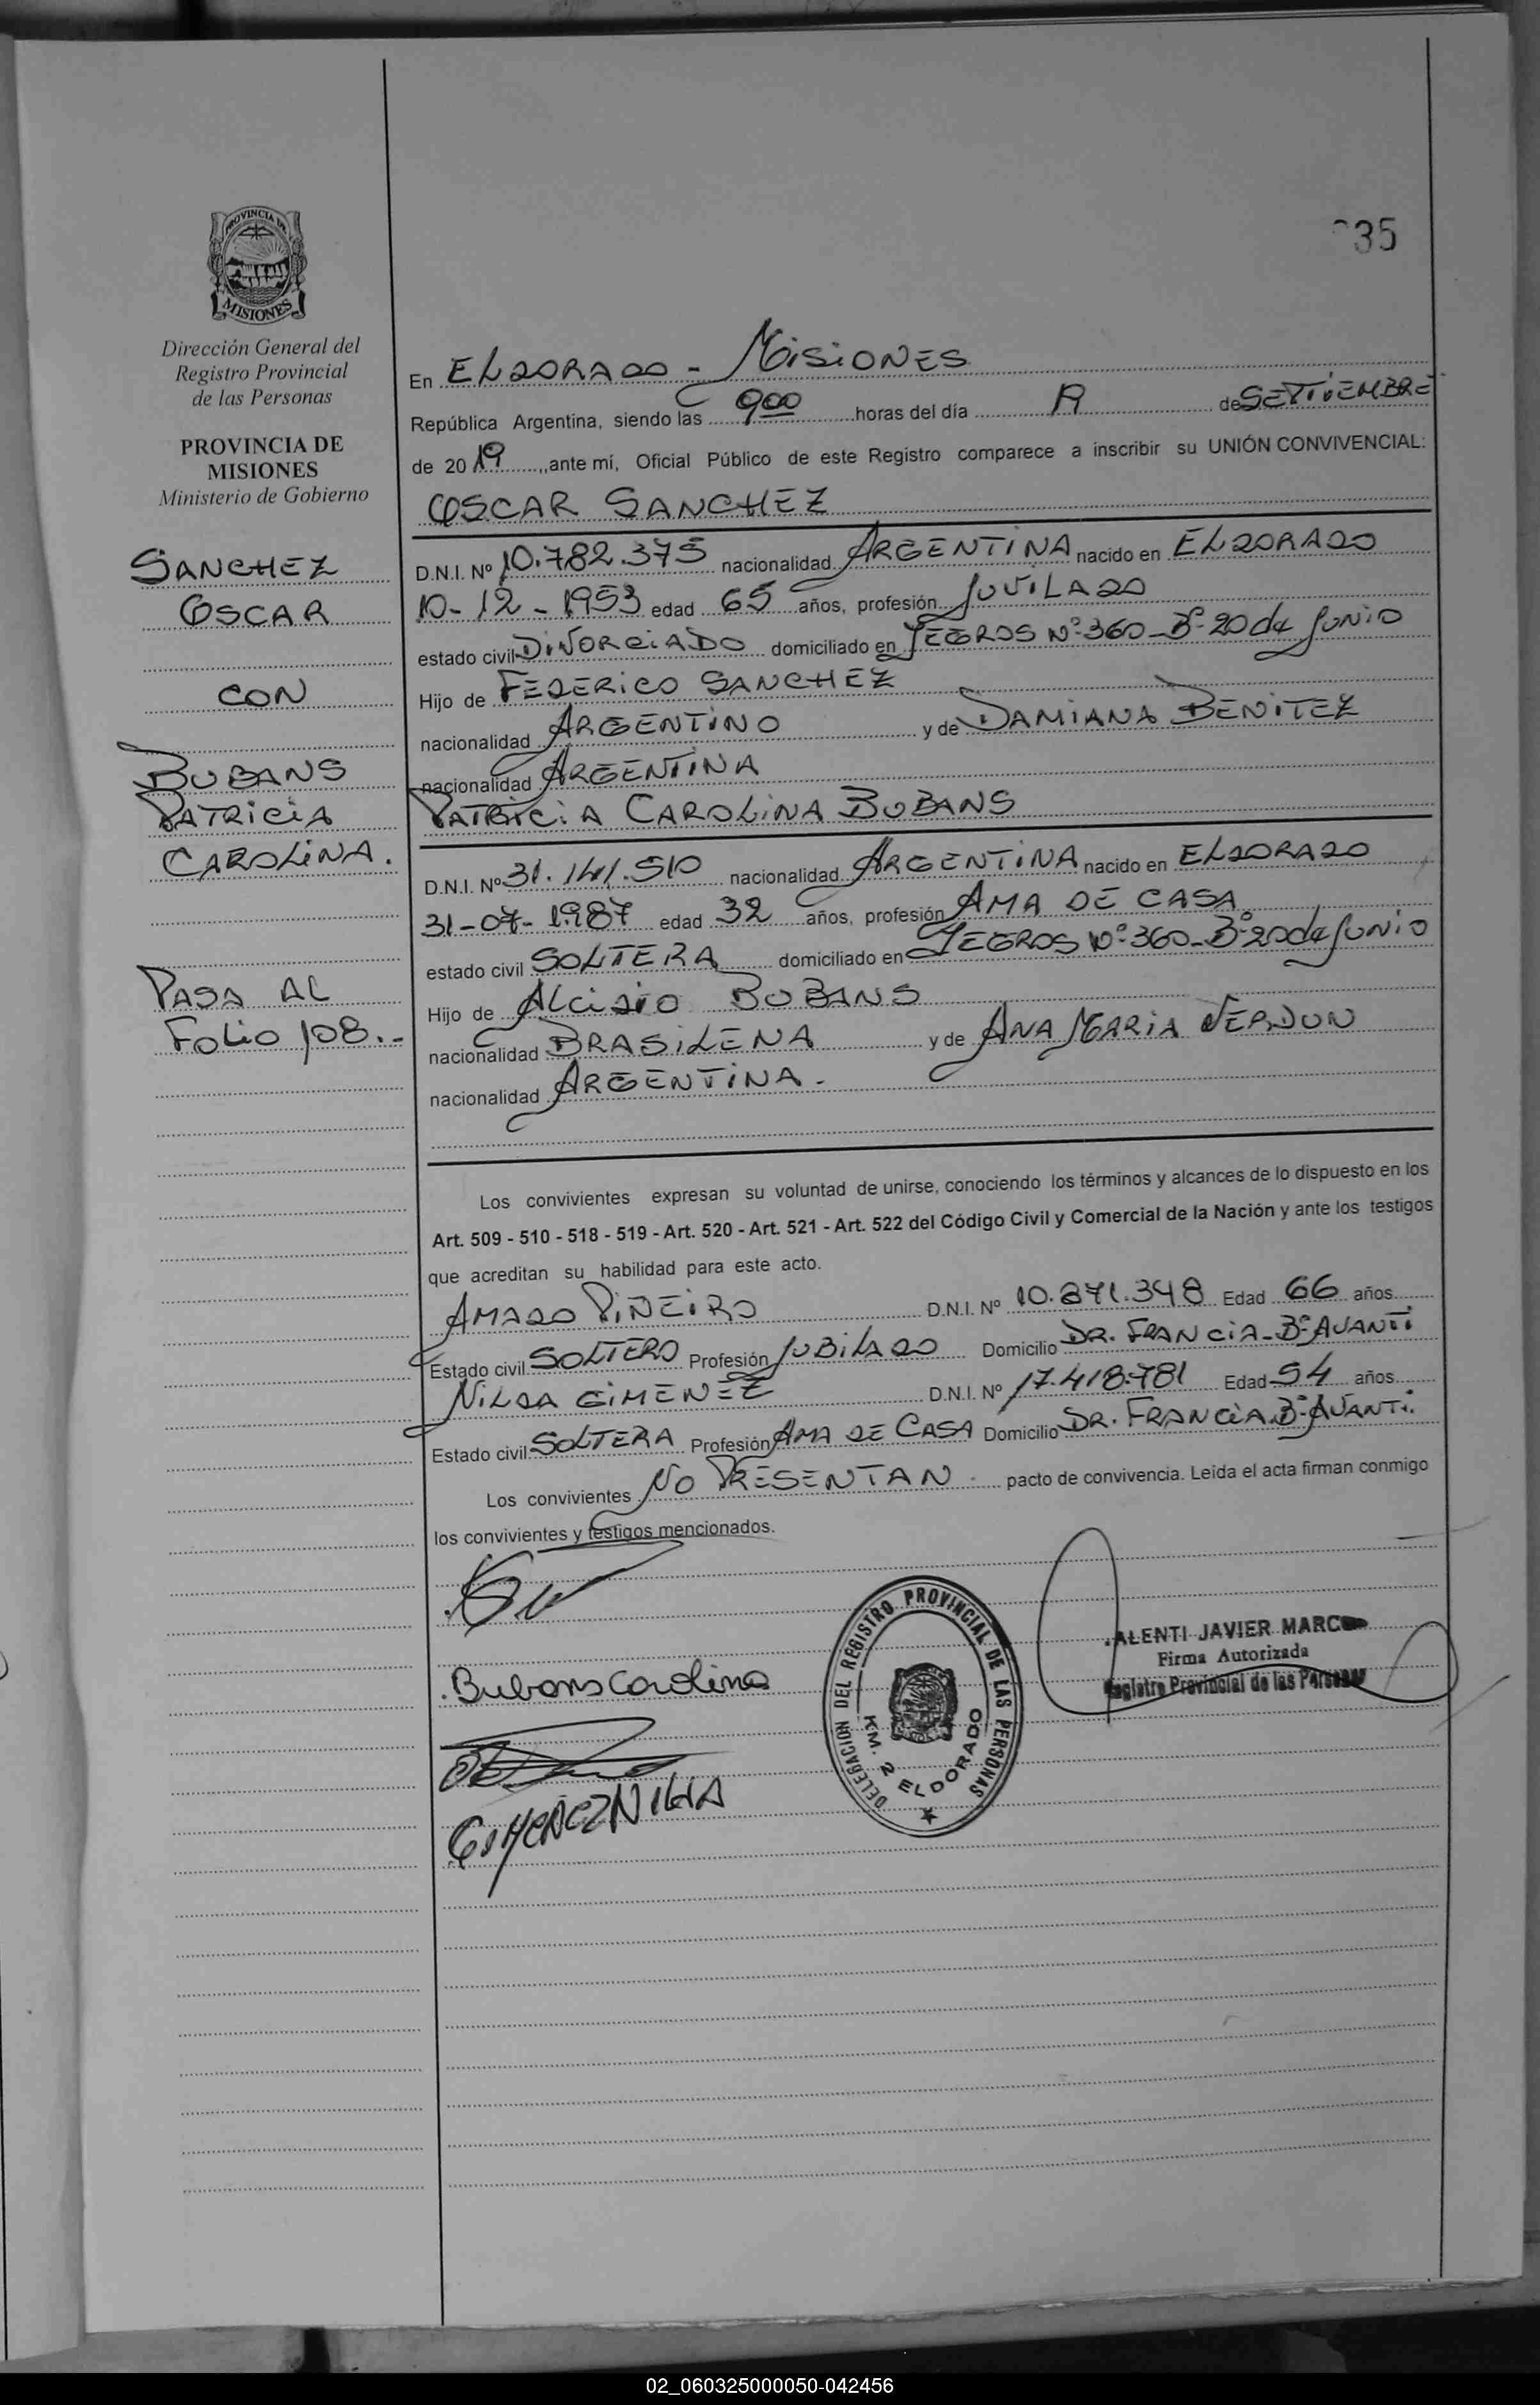 035
PROVINCIA DE
MISIONES
Dirección General del
Registro Provincial
de las Personas
PROVINCIA DE
MISIONES
Ministerio de Gobierno
SANCHEZ
OSCAR
CON
BUBANS
PATRICIA
CAROLINA.
PASA AL
FOLIO 108.-
En ELDORADO - MISIONES
República Argentina, siendo las 900 horas del día de SETTIEMBRE
de 2019, ante mí, Oficial Público de este Registro comparece a inscribir su UNIÓN CONVIVENCIAL:
OSCAR SANCHEZ
D.N.I. Nº 10.782.375 nacionalidad ARGENTINA nacido en ELDORADO
10-12-1953 edad 65 años, profesión JUVILADO
estado civil DIVORCIADO domiciliado en Nº 360 - Bº 20 de JUNIO
Hijo de FEDERICO SANCHEZ
nacionalidad ARGENTINO y de DAMIANA BENITEZ
nacionalidad ARGENTINA
PATRICIA CAROLINA BUBANS
D.N.I. Nº 31.141.510 nacionalidad ARGENTINA nacido en ELDORADO
31-07-1987 edad 32 años, profesión AMA DE CASA
estado civil SOLTERA domiciliado en Nº 360 - Bº 20 de JUNIO
Hijo de ALCIDIO BUBANS
nacionalidad BRASILENA y de ANA MARIA VERDUN
nacionalidad ARGENTINA.-
Los convivientes expresan su voluntad de unirse, conociendo los términos y alcances de lo dispuesto en los
Art. 509 - 510 - 518 - 519 - Art. 520 - Art. 521 - Art. 522 del Código Civil y Comercial de la Nación y ante los testigos
que acreditan su habilidad para este acto.
AMADO PIÑEIRO D.N.I. Nº 10.871.348 Edad 66 años
Estado civil SOLTERO Profesión JUBILADO Domicilio DR. FRANCIA - Bº AVANTI
NILDA GIMENEZ D.N.I. Nº 17.418.781 Edad 54 años
Estado civil SOLTERA Profesión AMA DE CASA Domicilio DR. FRANCIA Bº AVANTI
Los convivientes NO PRESENTAN pacto de convivencia. Leída el acta firman conmigo
los convivientes y testigos mencionados.
Bubans Carolina
GIMENEZ NILDA
DELEGACION DEL REGISTRO PROVINCIAL DE LAS PERSONAS
KM. 2 ELDORADO
ALENTI JAVIER MARCO
Firma Autorizada
Registro Provincial de las Personas
02_060325000050-042456